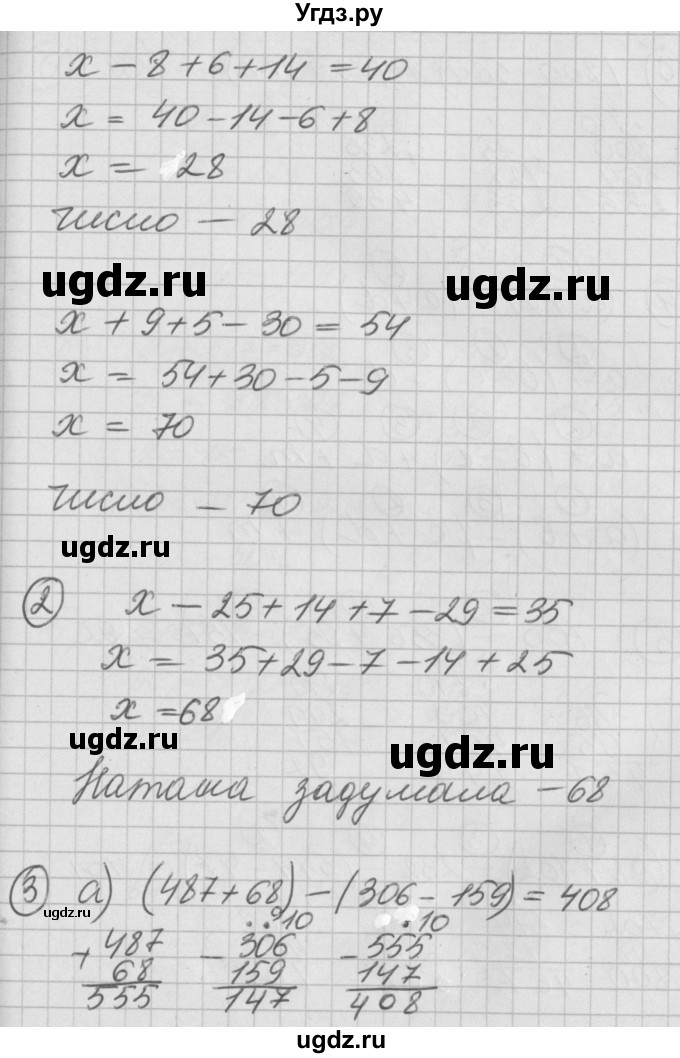 Угдз.ру
x - 8 + 6 + 14 = 40
x = 40 - 14 - 6 + 8
x = 28
число - 28
ugdz.ru ugdz.ru
x + 9 + 5 - 30 = 54
x = 54 + 30 - 5 - 9
x = 70
число - 70
ugdz.ru
② x - 25 + 14 + 7 - 29 = 35
x = 35 + 29 - 7 - 14 + 25
x = 68
ugdz.ru ugdz.ru
Наташа задумала - 68
③ а) (487 + 68) - (306 - 159) = 408
ugdz.ru
. . 9 10 . 10
+ 487 - 306 - 555
68 159 147
555 147 408
ugdz.ru